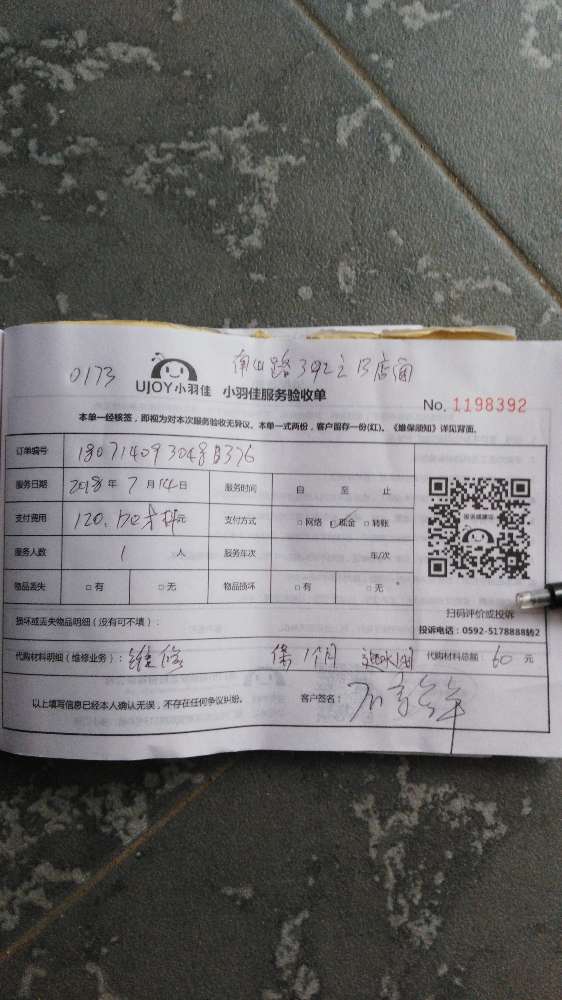 0173 南山路392之13店面
UJOY小羽佳 小羽佳服务验收单
No. 1198392
本单一经核签，即视为对本次服务验收无异议。本单一式两份，客户留存一份(红)。《维保须知》详见背面。
订单编号
服务日期 2018年 7月14日 服务时间 自 至 止
支付费用 120. 元 支付方式 □网络 □现金 □转账
服务人数 1 人 服务车次 车/次
物品丢失 □有 □无 物品损坏 □有 □无
扫码评价或投诉
投诉电话：0592-5178888转2
损坏或丢失物品明细（没有可不填）：
代购材料明细（维修业务）： 维修 保1个月 代购材料总额：60元
以上填写信息已经本人确认无误，不存在任何争议纠纷。 客户签名：